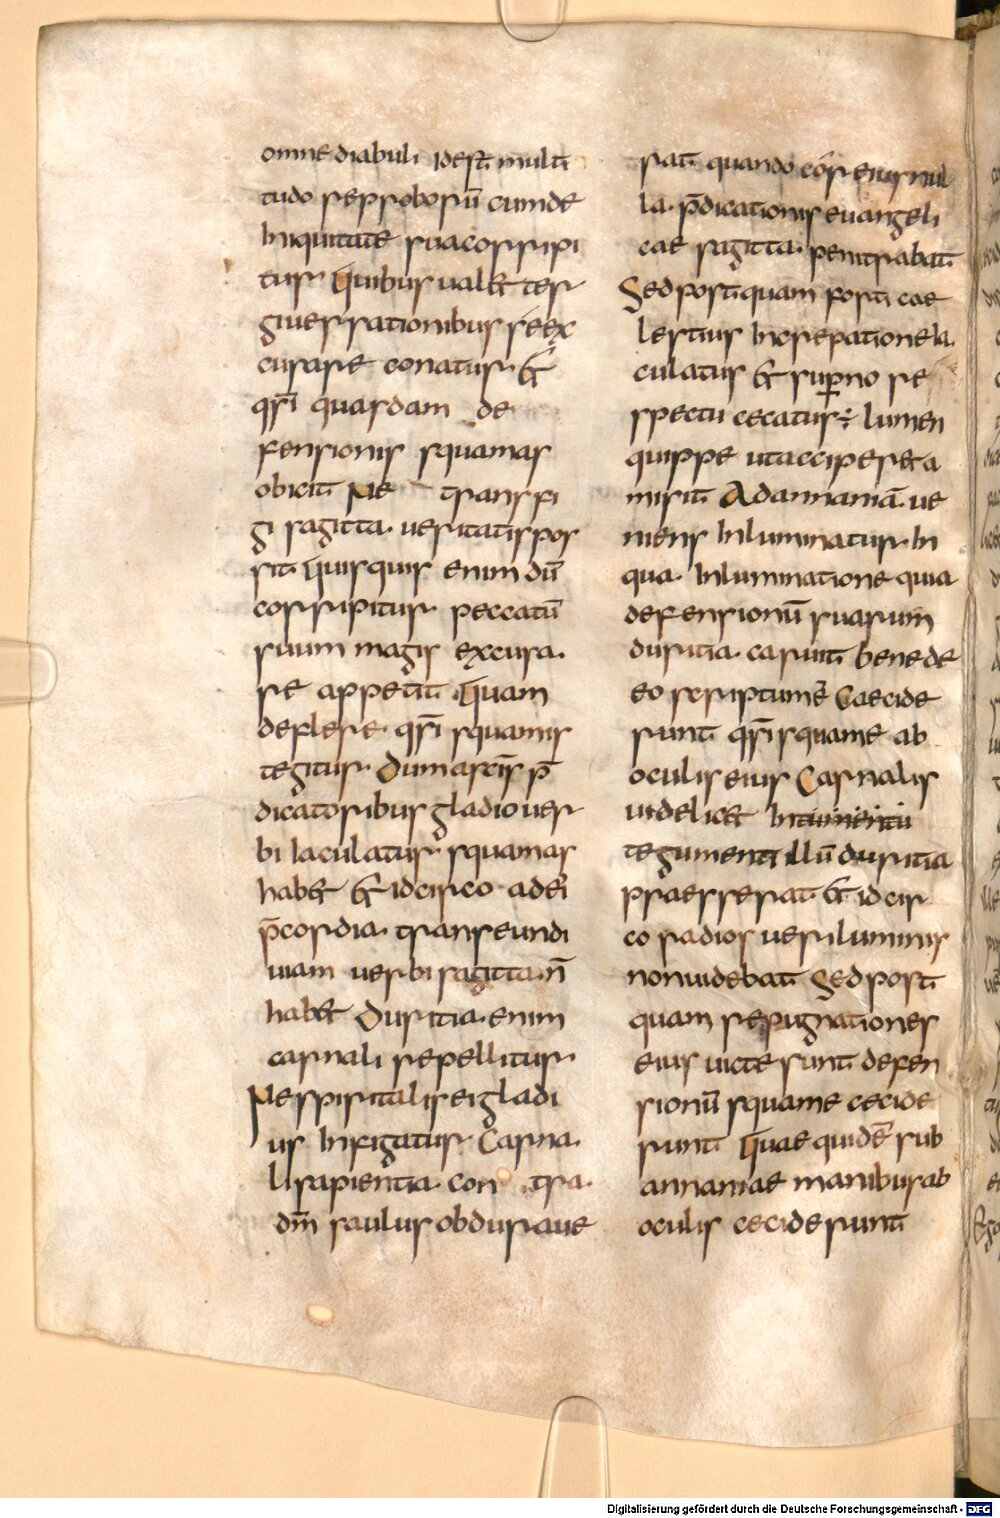 omne diabuli Id est multi
tudo reproborū cum de
Iniquitate sua corripi
tur Quibus ualet ter
giuersationibus se ex
cusare conatur et
qsī quasdam de
fensionis squamas
obicit Ne transfi
gi sagitta ueritatis pos
sit Quisquis enim dū
corripitur peccatū
suum magis excusa
re appetit Quam
deflere qsī squamis
tegitur Dum a scīs p̄
dicatoribus gladio uer
bi Iaculatur squamas
habet et idcirco ad eī
p̄cordia transeundi
uiam uerbi sagitta n̄
habet Duritia enim
carnali repellitur
Ne spiritalis ei gladi
us Infigatur Carna
li sapientia con tra
dm̄ saulus obduraue
rat quando cor eius nul
la p̄dicationis euangeli
cae sagitta penitrabat
Sed postquam fosti cae
lestius Increpatione Ia
culatus et sup̱no re
spectu cecatus lumen
quippe ut acciperet a
misit Ad annaniā ue
niens Inluminatur In
qua Inluminatione quia
defensionū suarum
duritia caruit bene de
eo scriptum ē Caecide
runt qsī squame ab
oculis eius Carnalis
uidelicet Intuimentū
tegumenti illū duritia
praesserat et idcir
co radios ueri luminis
non uidebat Sed post
quam repugnationes
eius uicte sunt defen
sionū squame cecide
runt Quae quidē sub
annaniae manibus ab
oculis ceciderunt
Digitalisierung gefördert durch die Deutsche Forschungsgemeinschaft - DFG